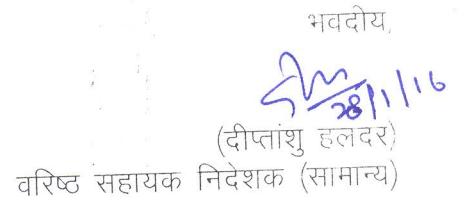 भवदीय,
28/1/16
(दीप्तांशु हलदर)
वरिष्ठ सहायक निदेशक (सामान्य)